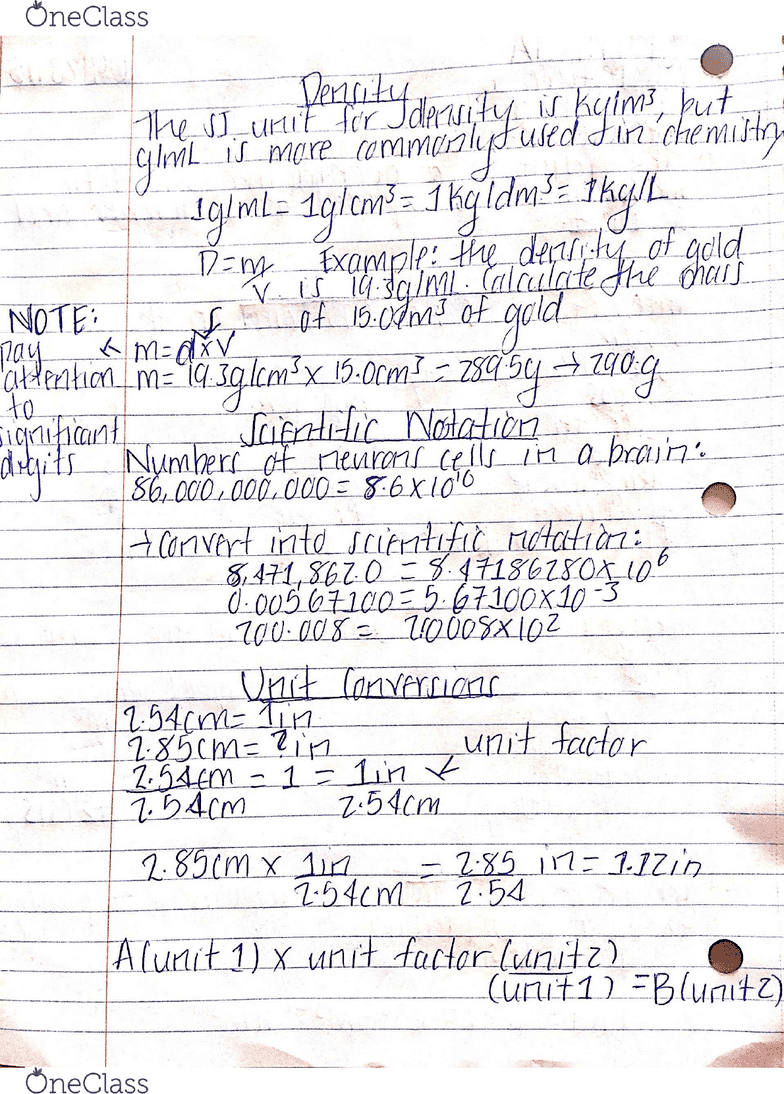 OneClass
Density
The SI unit for density is kg/m³, but
g/mL is more commonly used in chemistry
1g/mL = 1g/cm³ = 1kg/dm³ = 1kg/L
D = m/V Example: the density of gold
is 19.3g/mL. Calculate the mass
of 15.0cm³ of gold
NOTE:
pay attention to significant digits
m = d×V
m = 19.3g/cm³ × 15.0cm³ = 289.5g → 290.g
Scientific Notation
Numbers of neurons cells in a brain:
86,000,000,000 = 8.6×10¹⁰
→ Convert into scientific notation:
8,471,862.0 = 8.47186280×10⁶
0.00567100 = 5.67100×10⁻³
200.008 = 2.0008×10²
Unit Conversions
2.54cm = 1in
2.85cm = ?in
unit factor
2.54cm/2.54cm = 1 = 1in/2.54cm
2.85cm × 1in/2.54cm = 2.85/2.54 in = 1.12in
A(unit1) × unit factor (unit2)/(unit1) = B(unit2)
OneClass